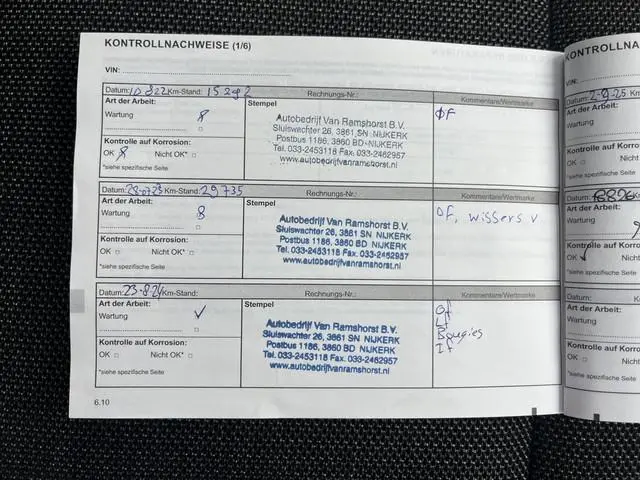 KONTROLLNACHWEISE (1/6)
VIN:
Datum: 10 822 Km-Stand: 15292 Rechnungs-Nr.: Kommentare/Wertmarke
Art der Arbeit: Stempel
Wartung 8
Autobedrijf Van Ramshorst B.V.
Sluiswachter 26, 3861 SN NIJKERK
Postbus 1186, 3860 BD NIJKERK
Tel. 033-2453118 Fax. 033-2462957
www.autobedrijfvanramshorst.nl
OF
Kontrolle auf Korrosion:
OK Nicht OK*
*siehe spezifische Seite
Datum: 28-07-23 Km-Stand: 29735 Rechnungs-Nr.: Kommentare/Wertmarke
Art der Arbeit: Stempel
Wartung 8
Autobedrijf Van Ramshorst B.V.
Sluiswachter 26, 3861 SN NIJKERK
Postbus 1186, 3860 BD NIJKERK
Tel. 033-2453118 Fax. 033-2462957
www.autobedrijfvanramshorst.nl
OF, wissers v
Kontrolle auf Korrosion:
OK Nicht OK*
*siehe spezifische Seite
Datum: 23-8-24 Km-Stand: Rechnungs-Nr.: Kommentare/Wertmarke
Art der Arbeit: Stempel
Wartung
Autobedrijf Van Ramshorst B.V.
Sluiswachter 26, 3861 SN NIJKERK
Postbus 1186, 3860 BD NIJKERK
Tel. 033-2453118 Fax. 033-2462957
www.autobedrijfvanramshorst.nl
Of
Lf
Bougies
If
Kontrolle auf Korrosion:
OK Nicht OK*
*siehe spezifische Seite
6.10
KONTROLLNA
VIN:
Datum:
Art der Arbeit:
Wartung
Kontrolle auf Korr
OK Nicht
*siehe spezifische Seite
Art der Arbeit:
Wartung
Kontrolle auf Korros
OK Nicht O
*siehe spezifische Seite
Datum:
Art der Arbeit:
Wartung
Kontrolle auf Korrosio
OK Nicht OK
*siehe spezifische Seite